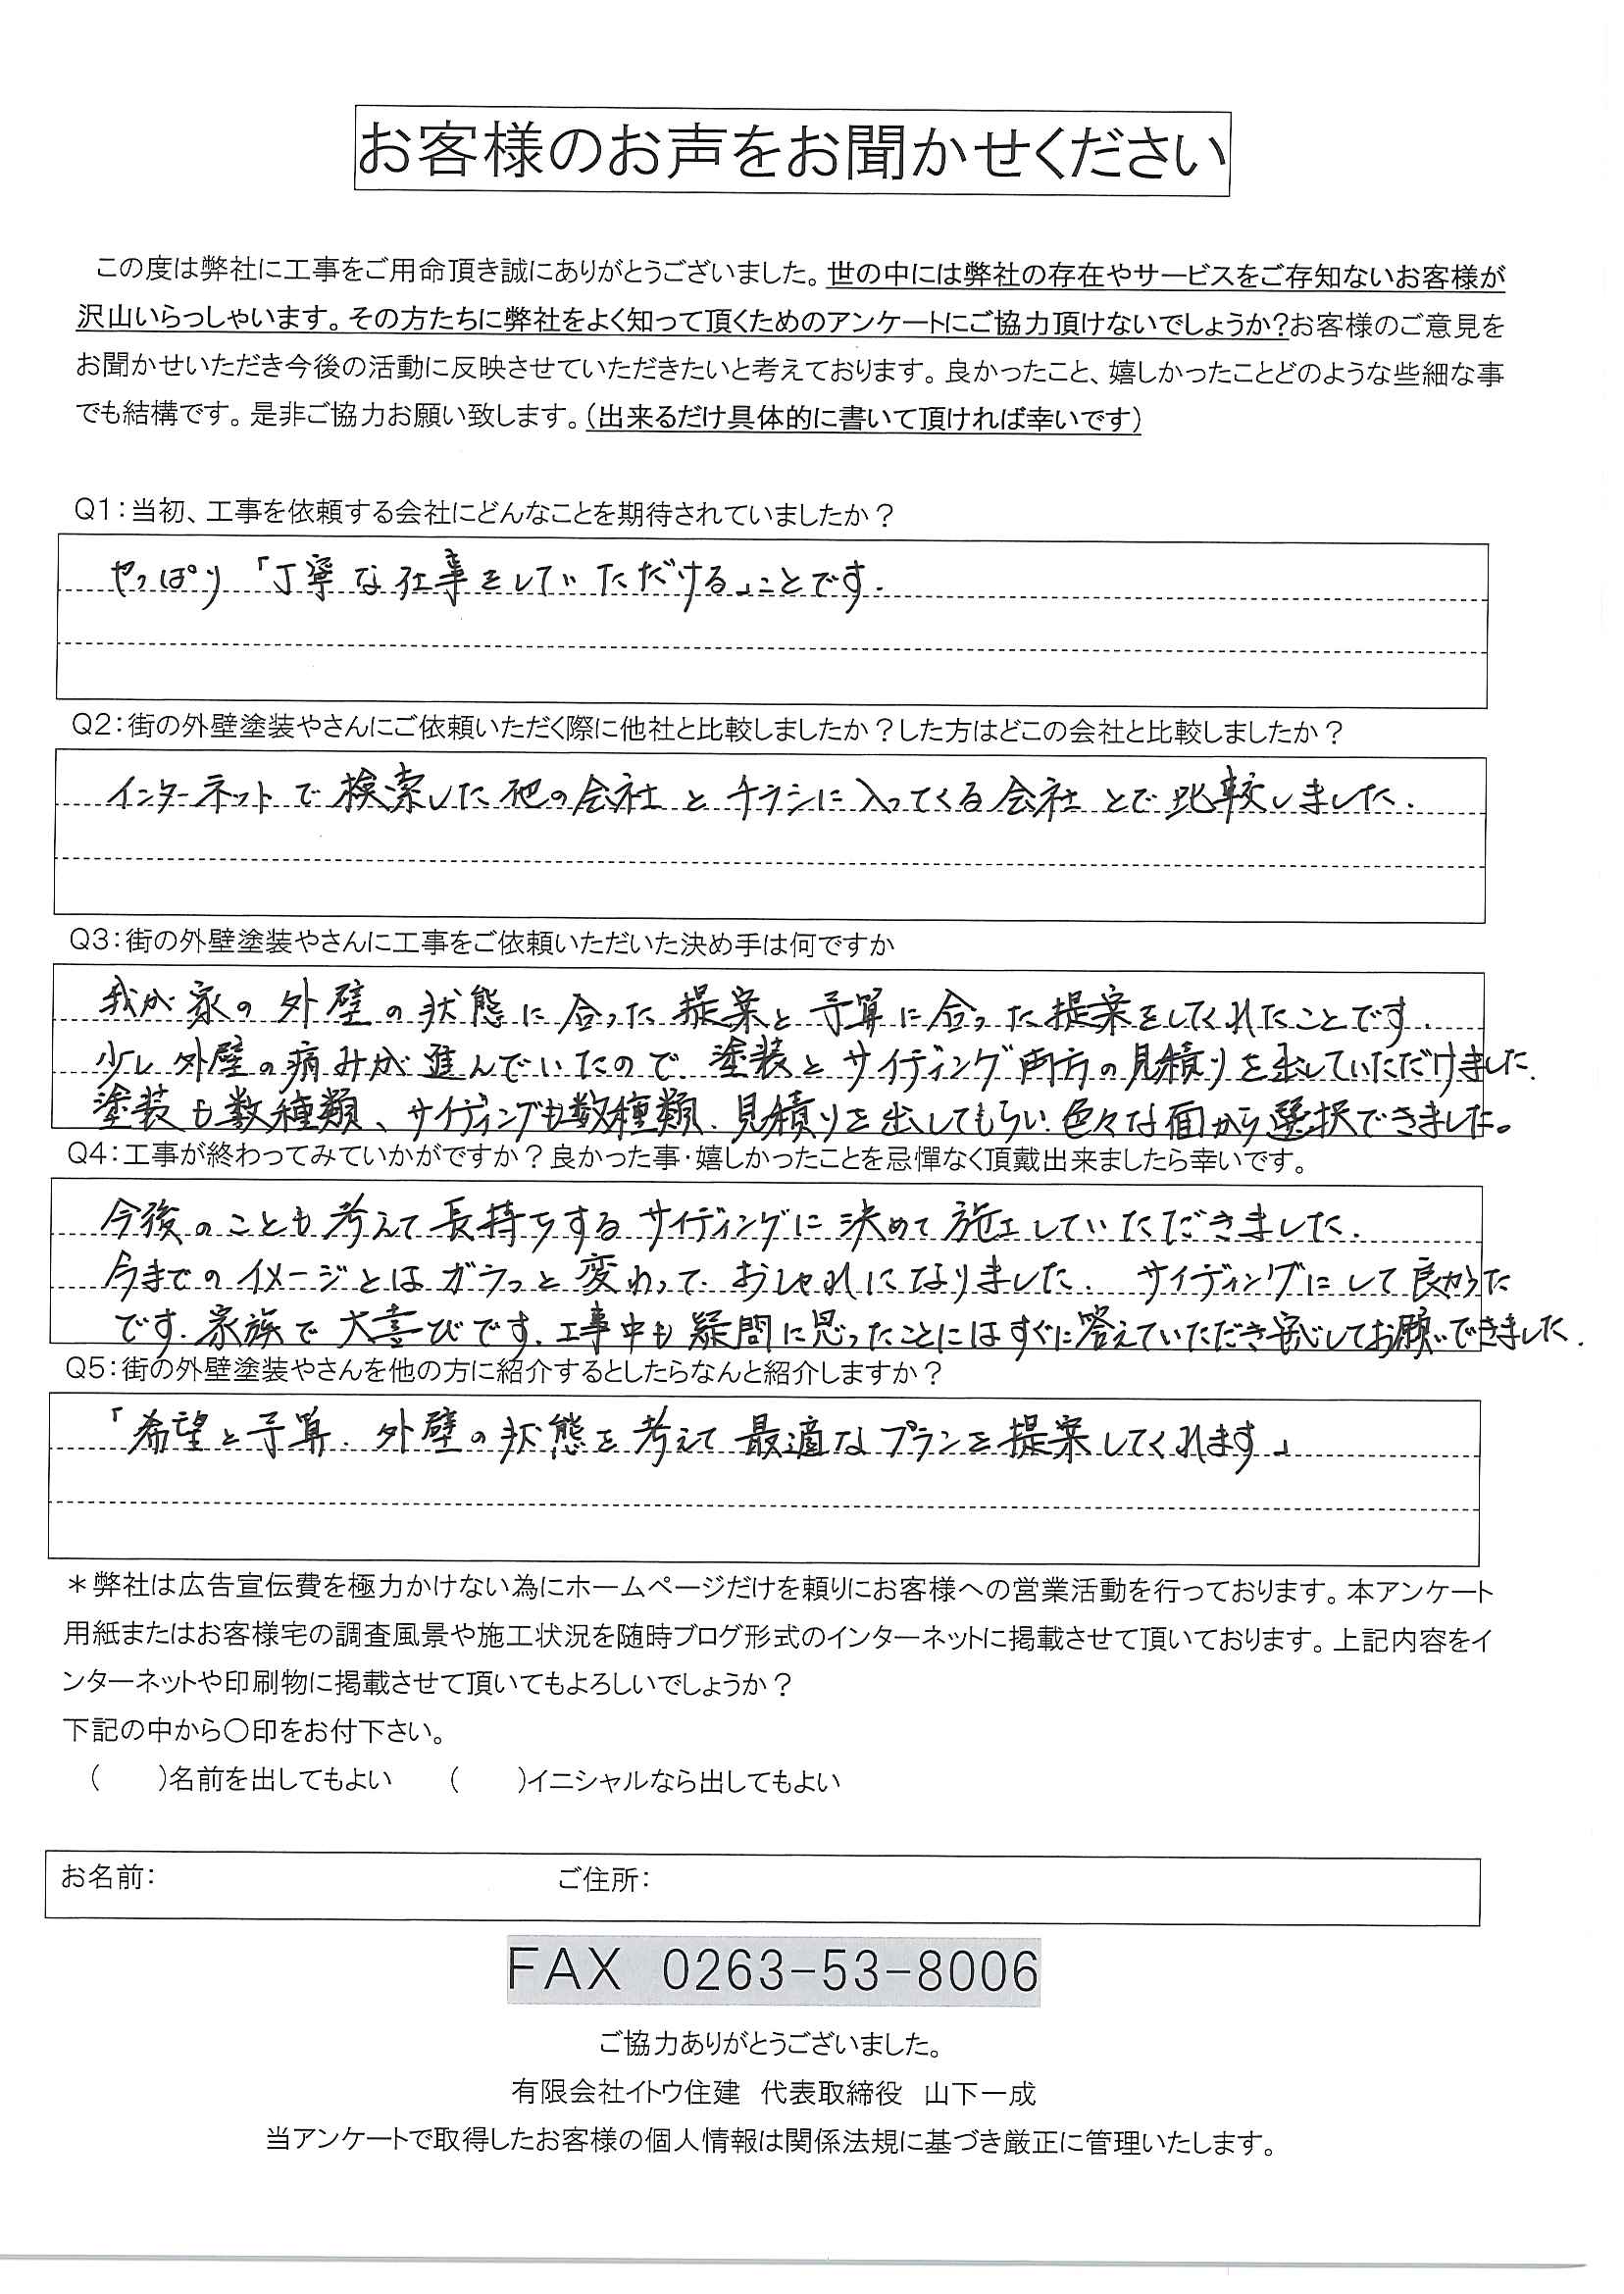 お客様のお声をお聞かせください
この度は弊社に工事をご用命頂き誠にありがとうございました。世の中には弊社の存在やサービスをご存知ないお客様が
沢山いらっしゃいます。その方たちに弊社をよく知って頂くためのアンケートにご協力頂けないでしょうか?お客様のご意見を
お聞かせいただき今後の活動に反映させていただきたいと考えております。良かったこと、嬉しかったことどのような些細な事
でも結構です。是非ご協力お願い致します。(出来るだけ具体的に書いて頂ければ幸いです)
Q1:当初、工事を依頼する会社にどんなことを期待されていましたか?
やっぱり「丁寧な仕事をしていただける」ことです.
Q2:街の外壁塗装やさんにご依頼いただく際に他社と比較しましたか?した方はどこの会社と比較しましたか?
インターネットで検索した他の会社とチラシに入ってくる会社とで比較しました.
Q3:街の外壁塗装やさんに工事をご依頼いただいた決め手は何ですか
我が家の外壁の状態に合った提案と予算に合った提案をしてくれたことです.
少し外壁の痛みが進んでいたので、塗装とサイディング両方の見積りを出していただけました.
塗装も数種類、サイディングも数種類、見積りを出してもらい、色々な面から選択できました。
Q4:工事が終わってみていかがですか?良かった事・嬉しかったことを忌憚なく頂戴出来ましたら幸いです。
今後のことも考えて長持ちするサイディングに決めて施工していただきました.
今までのイメージとはガラっと変わって、おしゃれになりました. サイディングにして良かった
です.家族で大喜びです.工事中も疑問に思ったことにはすぐに答えていただき安心してお願いできました.
Q5:街の外壁塗装やさんを他の方に紹介するとしたらなんと紹介しますか?
「希望と予算、外壁の状態を考えて最適なプランを提案してくれます」
＊弊社は広告宣伝費を極力かけない為にホームページだけを頼りにお客様への営業活動を行っております。本アンケート
用紙またはお客様宅の調査風景や施工状況を随時ブログ形式のインターネットに掲載させて頂いております。上記内容をイ
ンターネットや印刷物に掲載させて頂いてもよろしいでしょうか?
下記の中から〇印をお付下さい。
(　　)名前を出してもよい　　(　　)イニシャルなら出してもよい
お名前:　　ご住所:
FAX 0263-53-8006
ご協力ありがとうございました。
有限会社イトウ住建　代表取締役　山下一成
当アンケートで取得したお客様の個人情報は関係法規に基づき厳正に管理いたします。